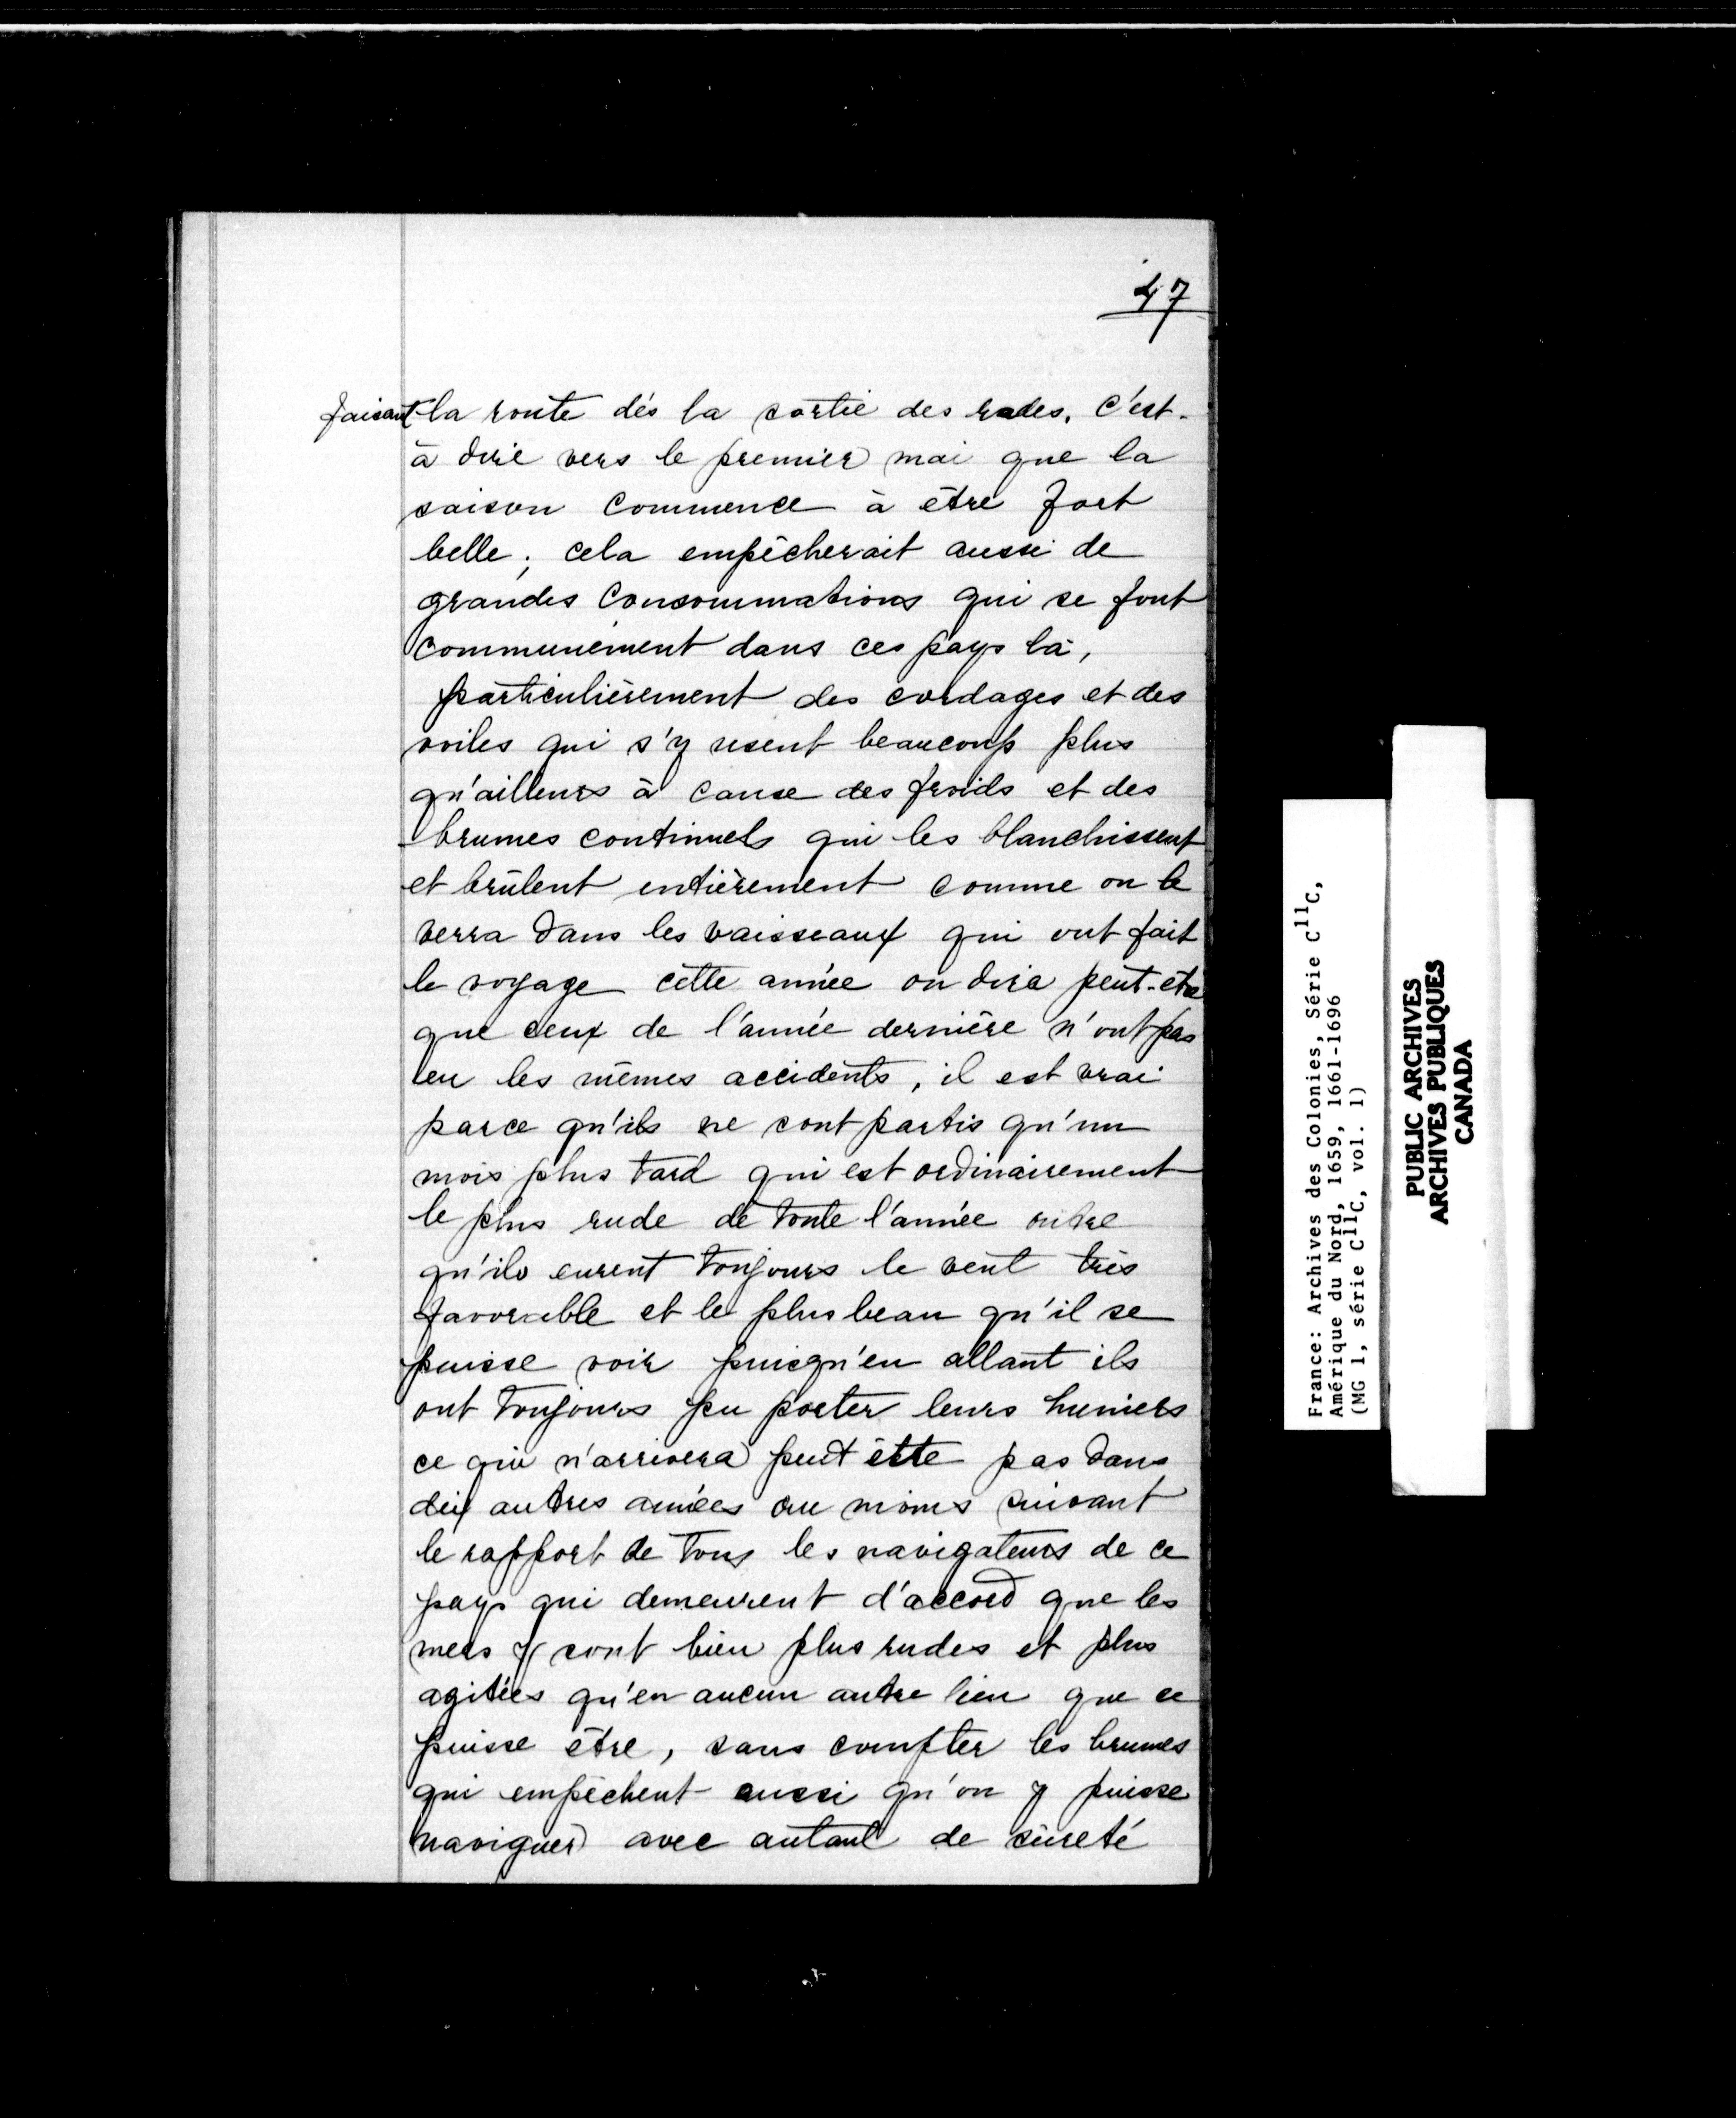 47
faisant la route dès la sortie des rades. C'est-
à dire vers le premier mai que la
saison commence à être fort
belle; cela empêcherait aussi de
grandes consommations qui se font
communément dans ces pays là,
particulièrement des cordages et des
voiles qui s'y usent beaucoup plus
qu'ailleurs à cause des froids et des
brumes continuels qui les blanchissent
et brûlent entièrement comme on le
verra dans les vaisseaux qui ont fait
le voyage cette année on dira peut-être
que ceux de l'année dernière n'ont pas
eu les mêmes accidents, il est vrai
parce qu'ils ne sont partis qu'un
mois plus tard qui est ordinairement
le plus rude de toute l'année outre
qu'ils eurent toujours le vent très
favorable et le plus beau qu'il se
puisse voir puisqu'en allant ils
ont toujours pu porter leurs huniers
ce qui n'arrivera peut être pas dans
dix autres années au moins suivant
le rapport de tous les navigateurs de ce
pays qui demeurent d'accord que les
mers y sont bien plus rudes et plus
agitées qu'en aucun autre lieu que ce
puisse être, sans compter les brumes
qui empêchent aussi qu'on y puisse
naviguer avec autant de sûreté
France: Archives des Colonies, Série C11C,
Amérique du Nord, 1659, 1661-1696
(MG 1, série C11C, vol. 1)
PUBLIC ARCHIVES
ARCHIVES PUBLIQUES
CANADA